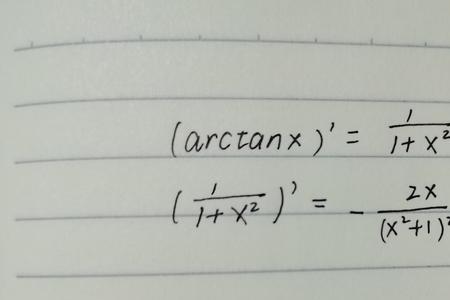 (arctanx)' = 1/(1+x²)
(1/(1+x²))' = -2x/(x²+1)²